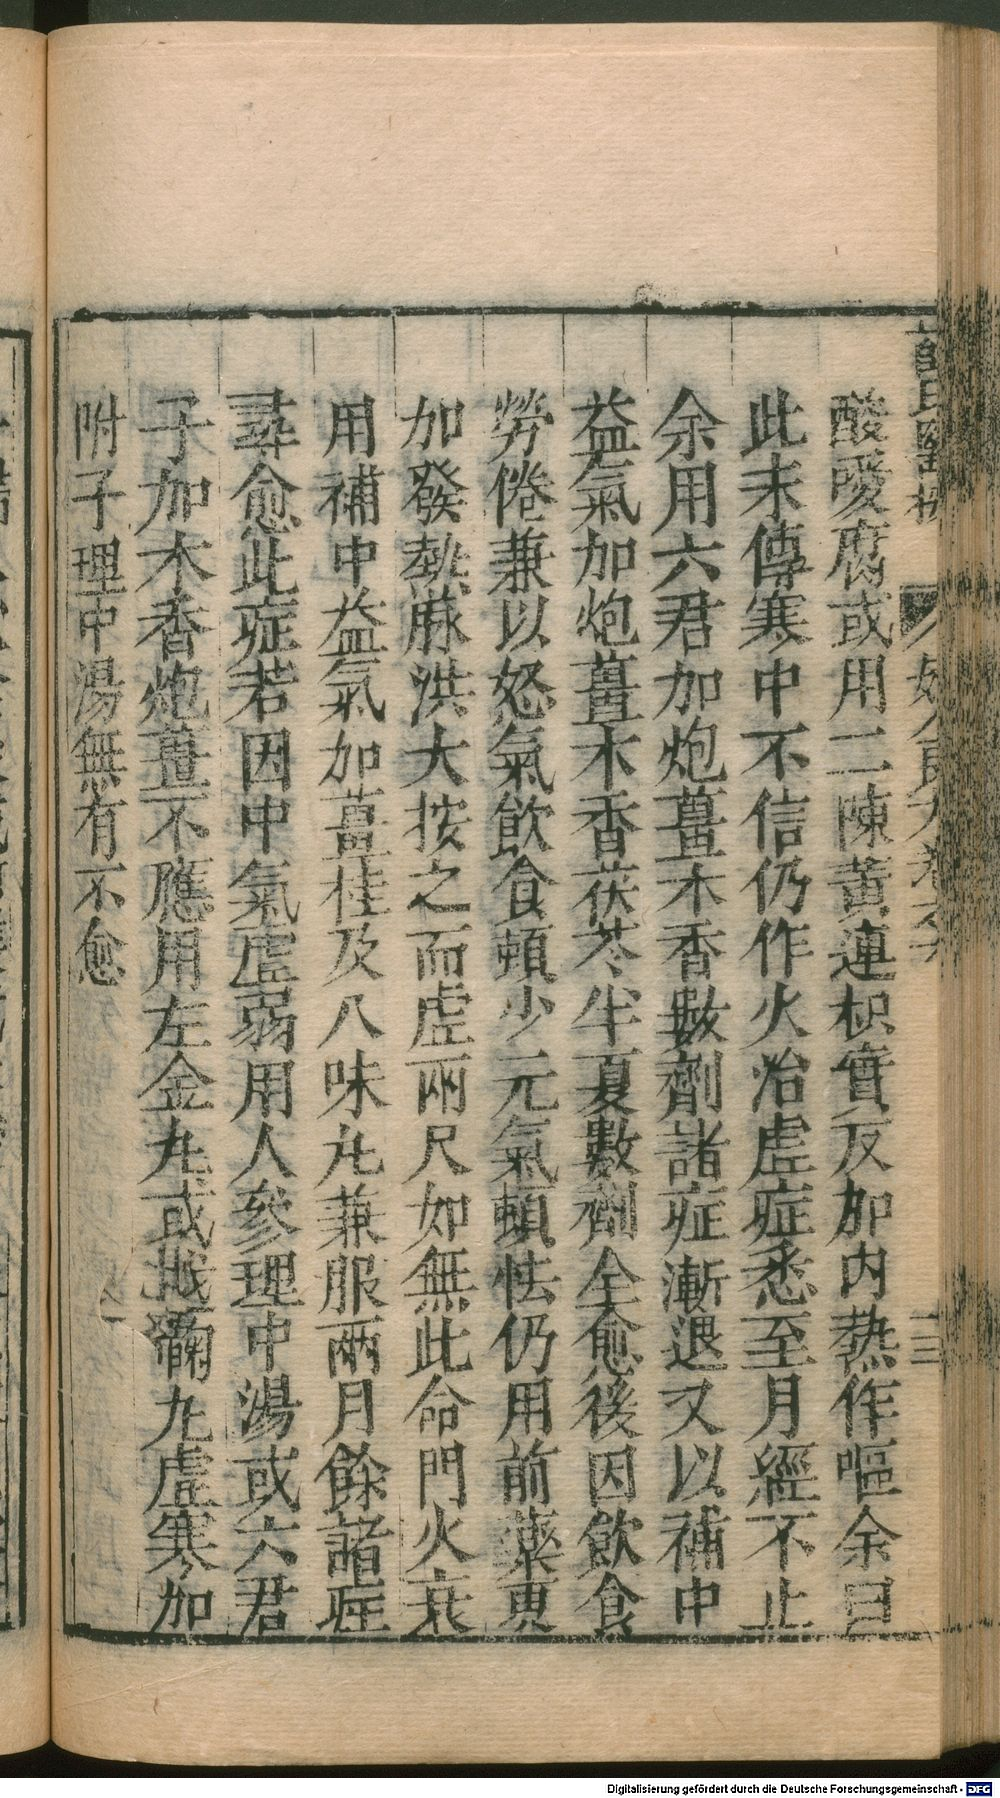 酸噯腐或用二陳黃連枳實反加內熱作嘔余曰
此末傳寒中不信仍作火治虛症悉至月經不止
余用六君加炮薑木香數劑諸症漸退又以補中
益氣加炮薑木香茯苓半夏數劑全愈後因飲食
勞倦兼以怒氣飲食頓少元氣頓怯仍用前藥更
加發熱脉洪大按之而虛兩尺如無此命門火衰
用補中益氣加薑桂及八味丸兼服兩月餘諸症
尋愈此症若因中氣虛弱用人參理中湯或六君
子加木香炮薑不應用左金丸或越鞠丸虛寒加
附子理中湯無有不愈
Digitalisierung gefördert durch die Deutsche Forschungsgemeinschaft - DFG